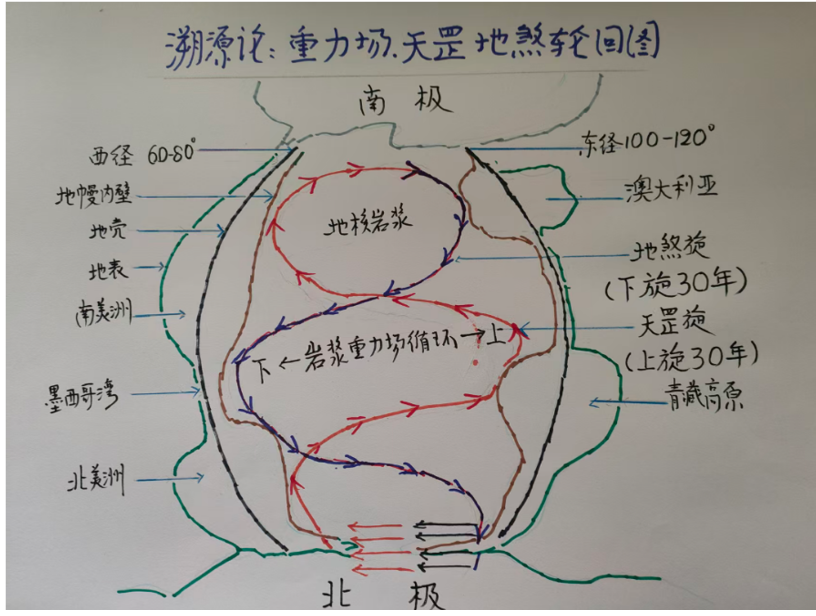 溯源论:重力场.天罡地煞轮回图
南极
西经 60-80°
东经100-120°
地幔内壁
澳大利亚
地壳
地核岩浆
地表
地煞旋
(下旋30年)
南美洲
天罡旋
下←岩浆重力场循环→上
(上旋30年)
墨西哥湾
青藏高原
北美洲
北极